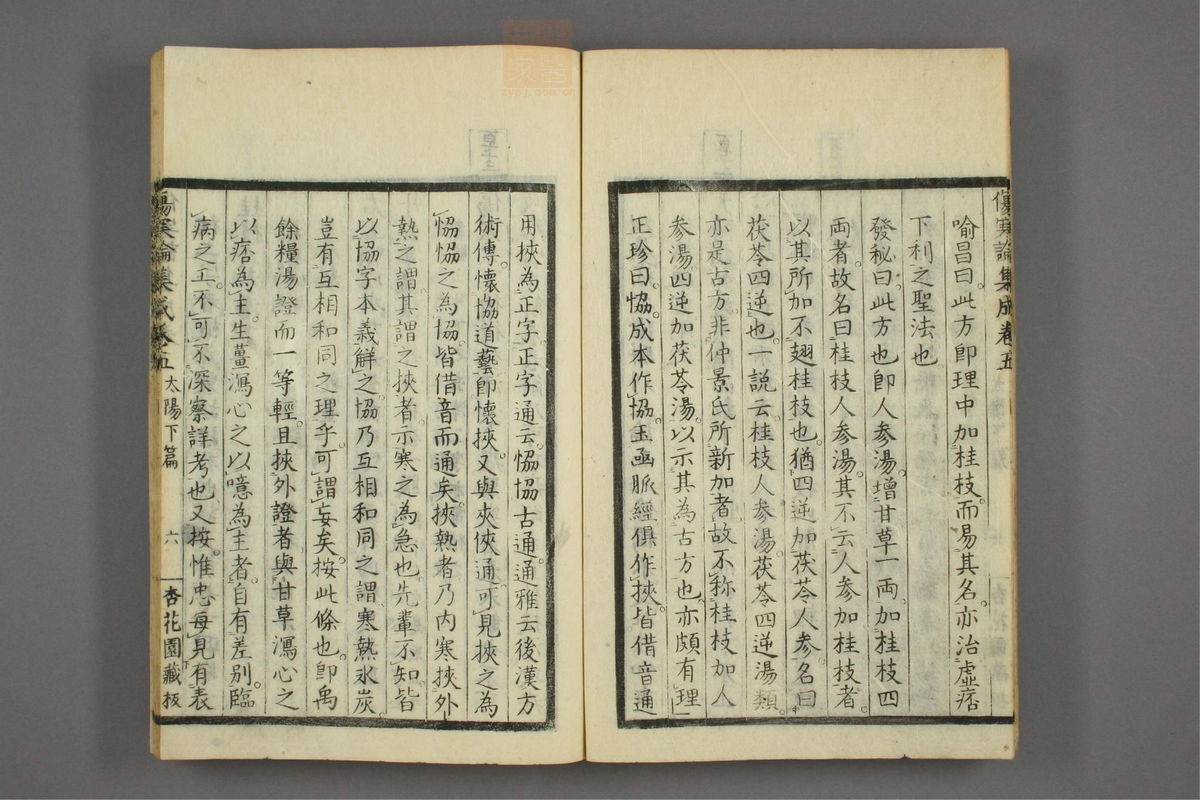 傷寒論集成卷五
喻昌曰。此方卽理中加桂枝。而易其名。亦治虛痞
下利之聖法也
發秘曰。此方也卽人參湯。增甘草一兩。加桂枝四
兩者。故名曰桂枝人參湯。其不云人參加桂枝者。
以其所加不翅桂枝也。猶四逆加茯苓人參。名曰
茯苓四逆也。一説云桂枝人參湯。茯苓四逆湯類。
亦是古方。非仲景氏所新加者。故不称桂枝加人
參湯。四逆加茯苓湯。以示其為古方也。亦頗有理
正珍曰。恊。成本作協。玉函脈經俱作挾。皆借音通
用。挾為正字。正字通云。恊協古通。通雅云。後漢方
術傳。懷協道藝。卽懷挾。又與夾俠通。可見挾之為
恊。恊之為協。皆借音而通矣。挾熱者。乃内寒挾外
熱之謂。其謂之挾者。示寒之為急也。先輩不知。皆
以協字本義解之。協乃互相和同之謂。寒熱氷炭。
豈有互相和同之理乎。可謂妄矣。按此條也。卽禹
餘糧湯證而一等輕。且挾外證者。與甘草瀉心之
以痞為主。生薑瀉心之以噫為主者。自有差別。臨
病之工。不可不深察詳考也。又按。惟忠每見有表
傷寒論集成卷五 太陽下篇 六 杏花園藏板